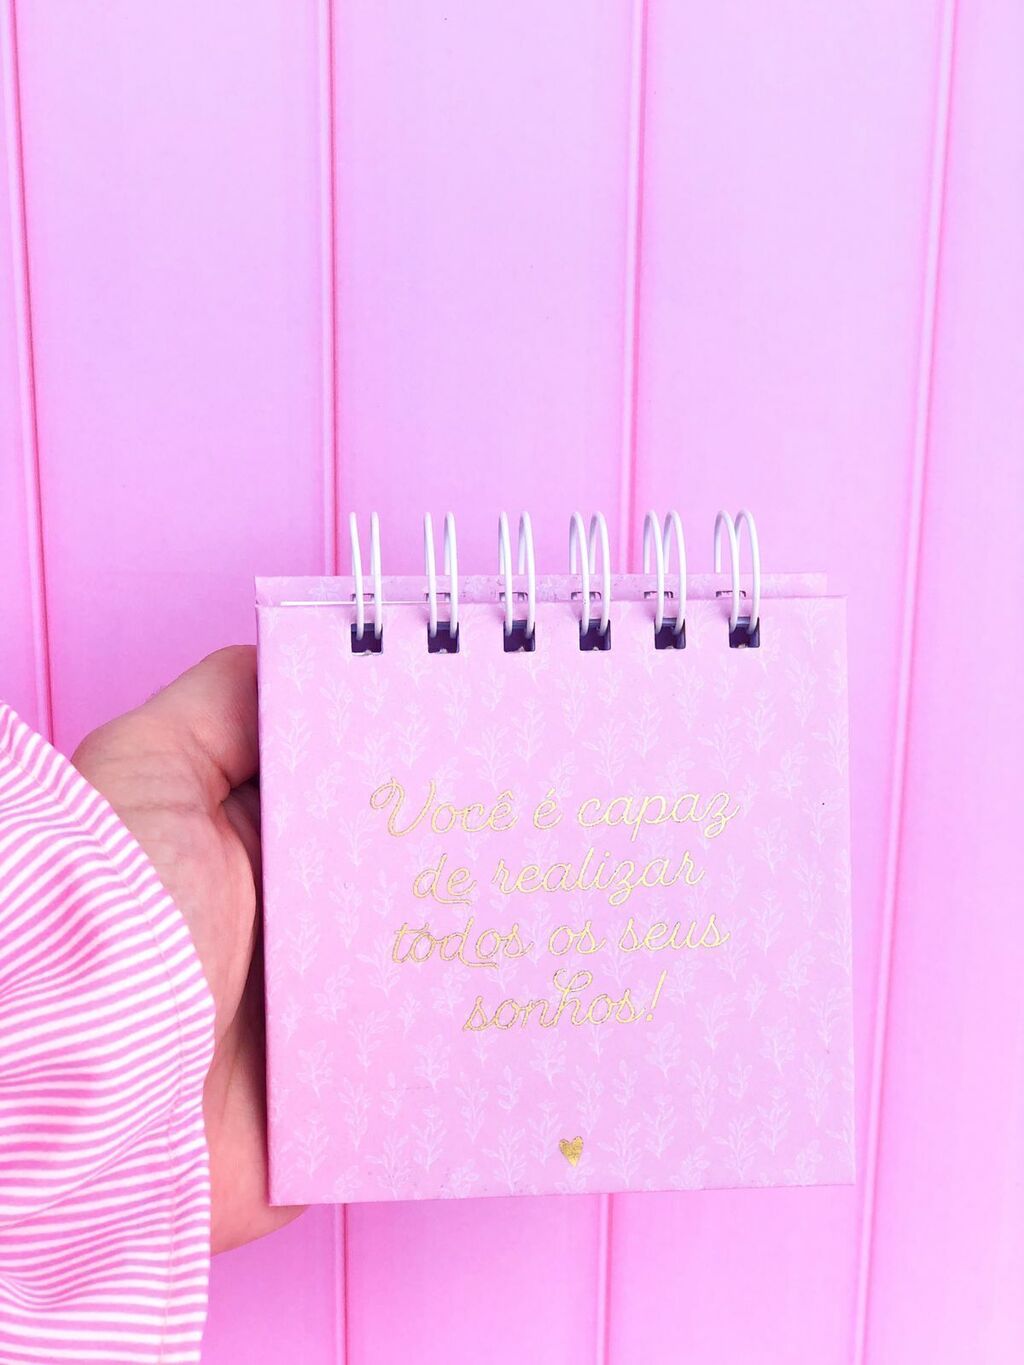 Você é capaz
de realizar
todos os seus
sonhos!